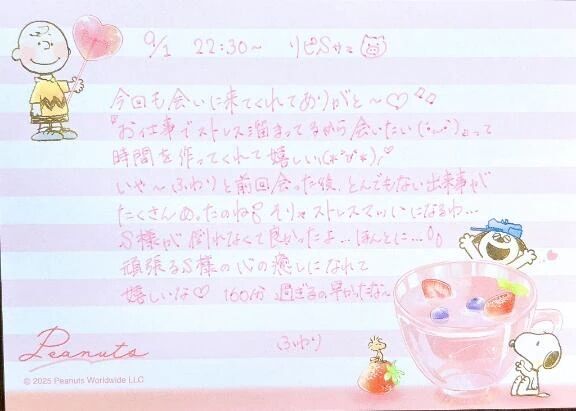 9/1 22:30〜 リピSサマ
今回も会いに来てくれてありがと〜♡♪♪
『お仕事でストレス溜まってるから会いたい(•᎑•)』って
時間を作ってくれて嬉しい!(*°▽°*)♡
いや〜ふわりと前回会った後、とんでもない出来事が
たくさんあったのね そりゃストレスMAXになるわ…
S様が倒れなくて良かったよ…ほんとに…
頑張るS様の心の癒しになれて
嬉しいな♡ 160分 過ぎるの早かったな〜
ふわり
Peanuts
© 2025 Peanuts Worldwide LLC